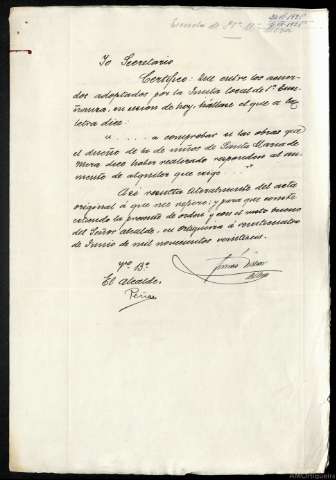 Escuela de Stª Mª
Mera
Yo Secretario
Certifico: Que entre los acuer-
dos adoptados por la Junta local de 1ª Ense-
ñanza, en sesion de hoy, hállase el que a la
letra dice:
". . . . . a comprobar si las obras que
el dueño de la de niños de Santa Maria de
Mera dice haber realizado responden al au-
mento de alquiler que exige . . . "
Así resulta literalmente del acta
original á que me refiero; y para que conste
extiendo la presente de orden y con el visto bueno
del Señor alcalde, en Ortigueira á veinticuatro
de Junio de mil novecientos veinticinco.
Vº Bº
El alcalde,
AMOrtigueira